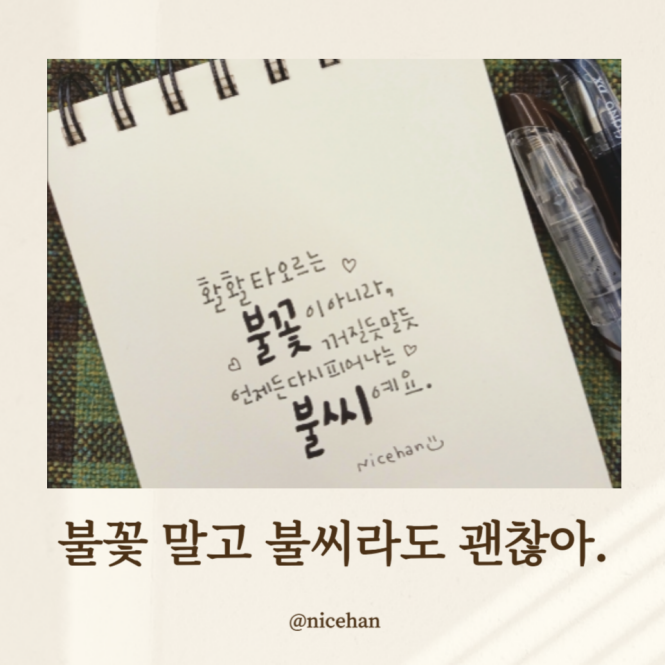 활활 타오르는
불꽃이 아니라,
꺼질듯말듯
언제든 다시 피어나는
불씨예요.
Nicehan
불꽃 말고 불씨라도 괜찮아.
@nicehan